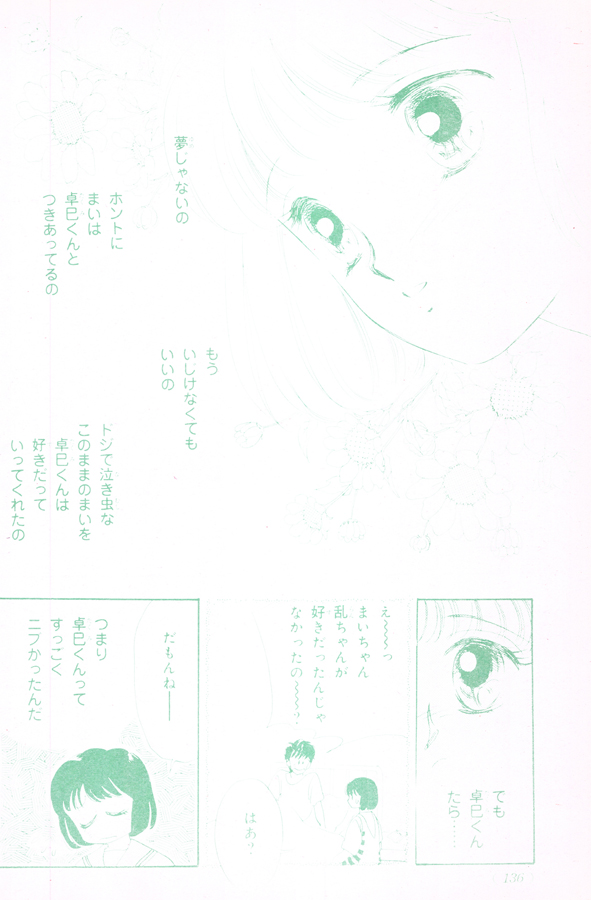 夢じゃないの
ホントに
まいは
卓巳くんと
つきあってるの
もう
いじけなくても
いいの
ドジで泣き虫な
このままのまいを
卓巳くんは
好きだって
いってくれたの
でも
卓巳くん
たら……
え〜〜〜っ
まいちゃん
乱ちゃんが
好きだったんじゃ
なかったの〜〜〜?
はあ?
だもんね――
つまり
卓巳くんって
すっごく
ニブかったんだ
136